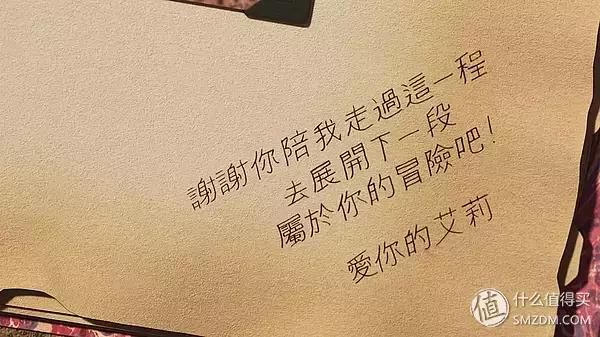 謝謝你陪我走過這一程
去展開下一段
屬於你的冒險吧！
愛你的艾莉
值 什么值得买
SMZDM.COM